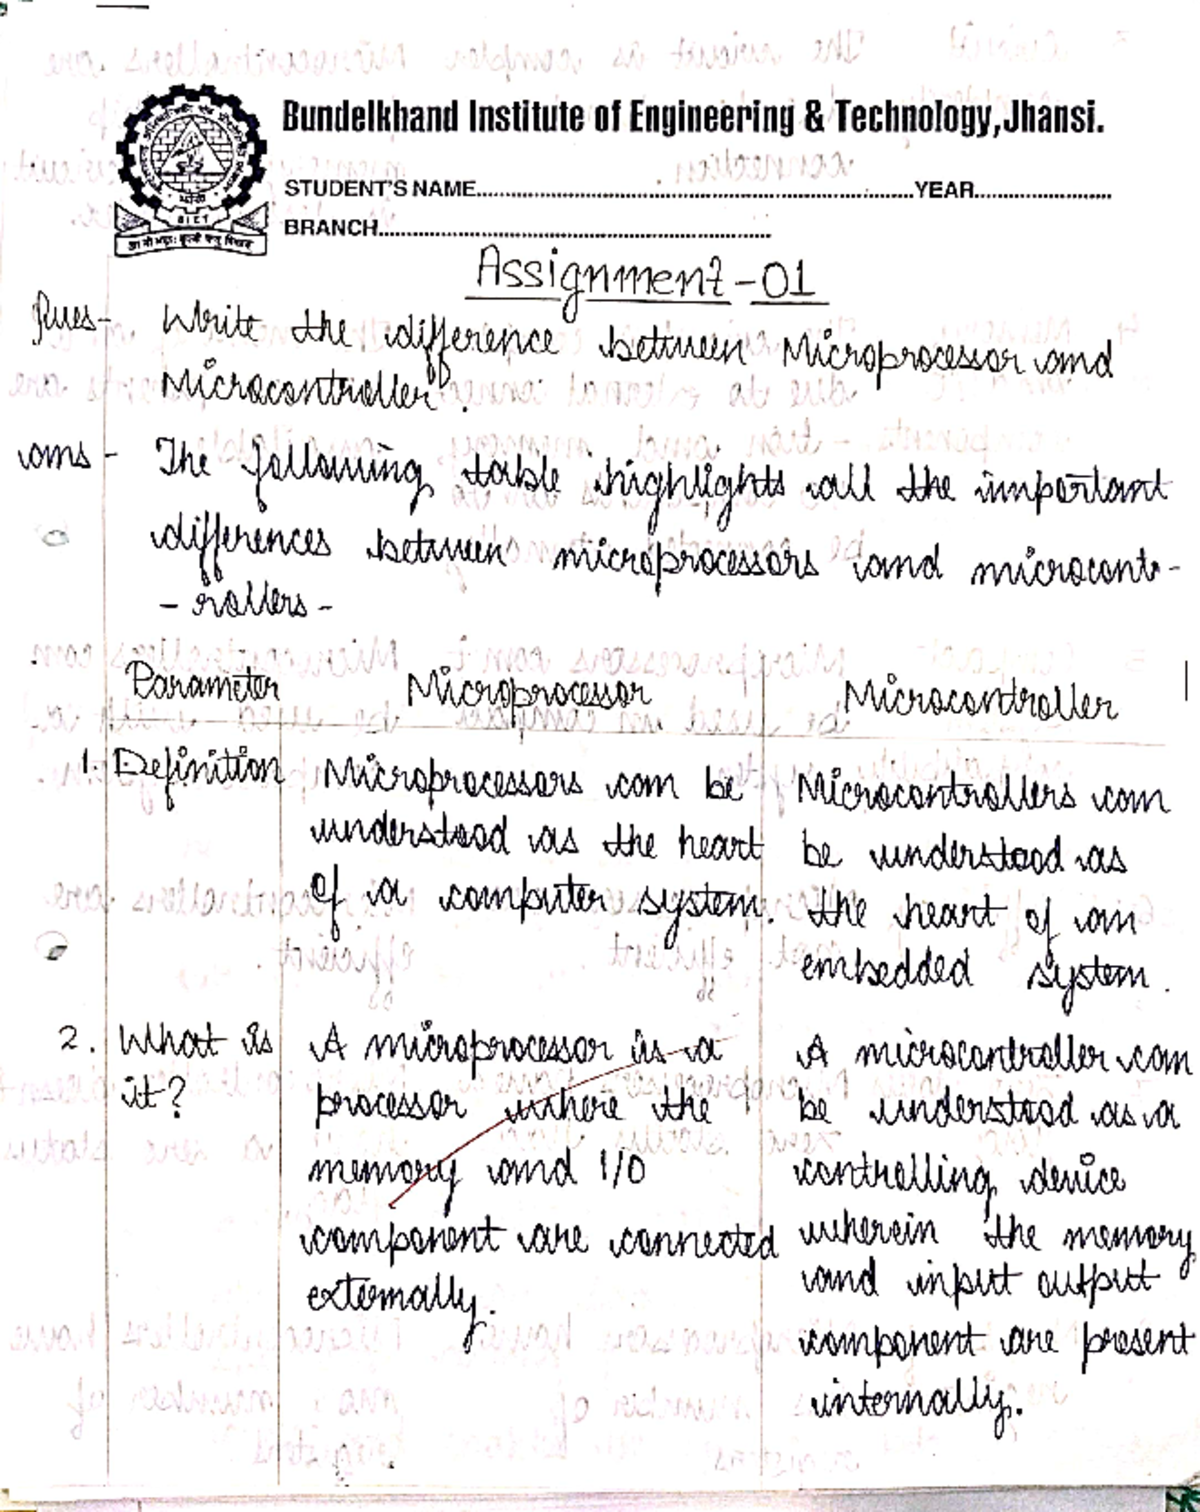 Bundelkhand Institute of Engineering & Technology, Jhansi.
STUDENT'S NAME..........YEAR..........
BRANCH..........
BIET
Assignment-01
Ques- Write the difference between Microprocessor and
Microcontroller.
ans - The following table highlights all the important
differences between microprocessors and microcont-
- rollers -
Parameter Microprocessor Microcontroller
1. Definition Microprocessors can be Microcontrollers can
understood as the heart be understood as
of a computer system. the heart of an
embedded system.
2. What is A microprocessor is a A microcontroller can
it? processor where the be understood as a
memory and I/O controlling device
component are connected wherein the memory
externally. and input output
component are present
internally.